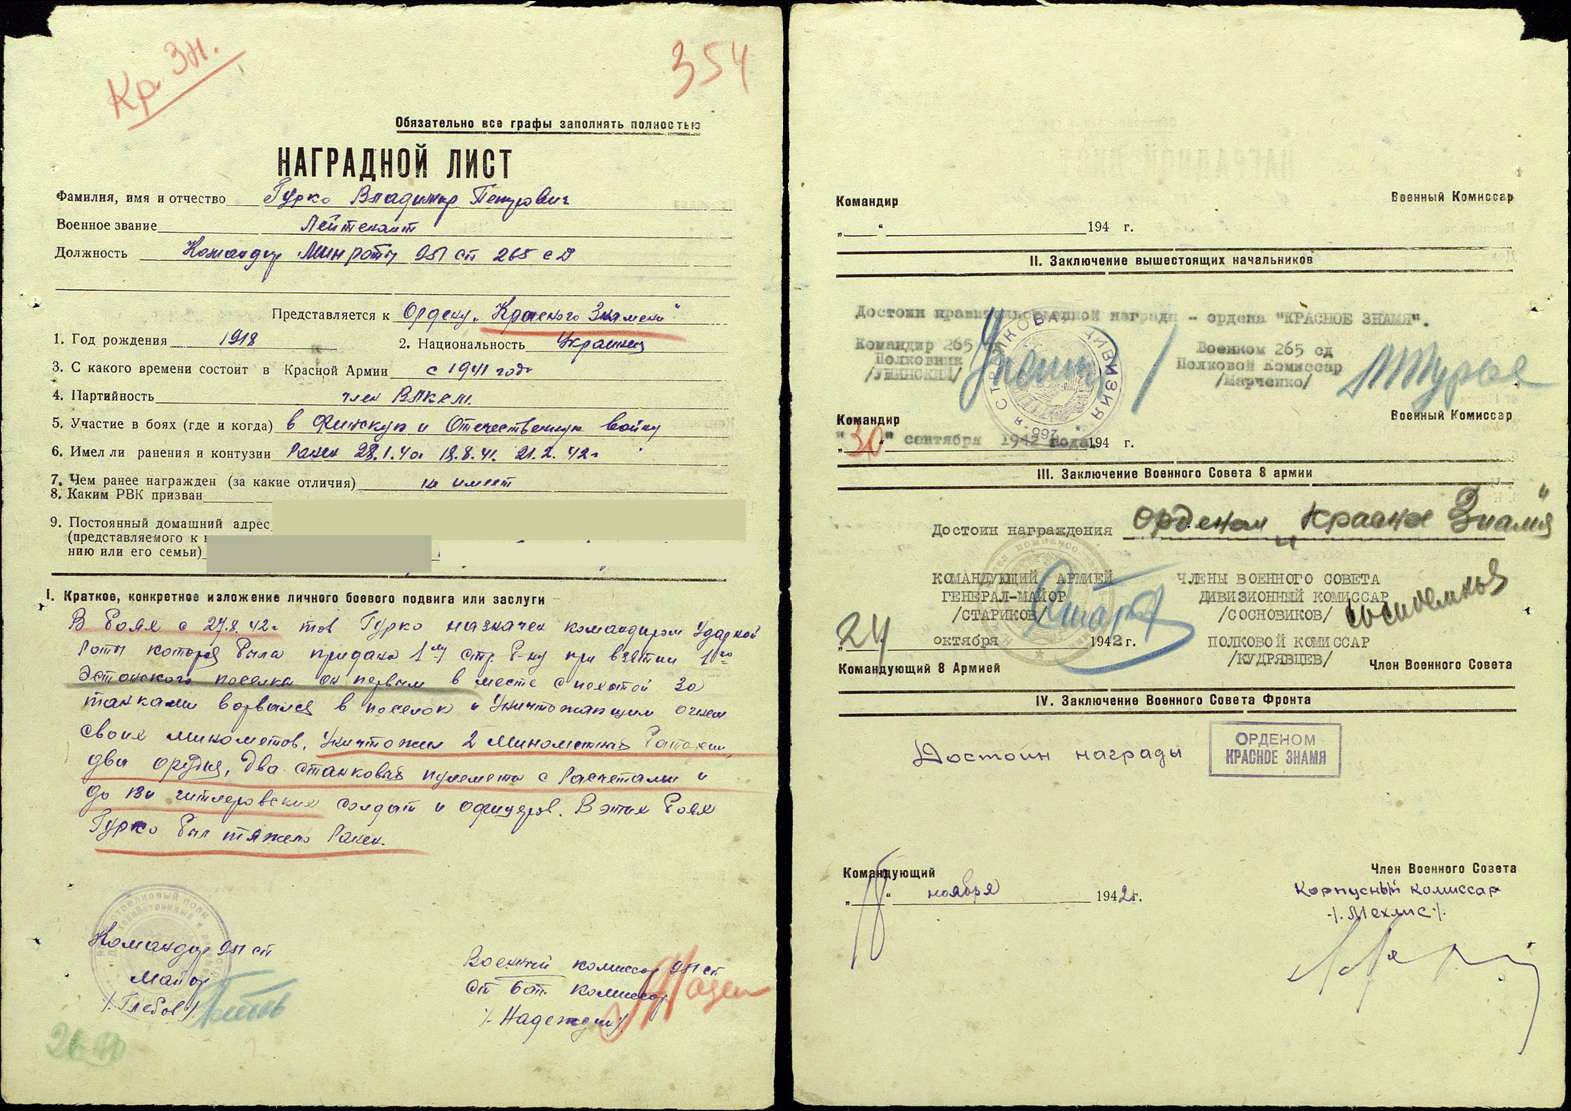 Кр. Зн.
354
Обязательно все графы заполнять полностью
НАГРАДНОЙ ЛИСТ
Фамилия, имя и отчество Гурко Владимир Петрович
Военное звание Лейтенант
Должность Командир Минроты 951 сп 265 сд
Представляется к Ордену „Красного Знамени"
1. Год рождения 1918 2. Национальность Украинец
3. С какого времени состоит в Красной Армии с 1941 года
4. Партийность член ВЛКСМ.
5. Участие в боях (где и когда) в Финскую и Отечественную войну
6. Имел ли ранения и контузии Ранен 28.1.40г 18.8.41. 21.2.42г
7. Чем ранее награжден (за какие отличия) не имеет
8. Каким РВК призван
9. Постоянный домашний адрес
(представляемого к
нию или его семьи)
I. Краткое, конкретное изложение личного боевого подвига или заслуги
В боях с 27.8.42г тов Гурко назначен командиром Ударной
Роты которая была придана 1му стр. б-ну при взятии 1го
Эстонского поселка он первым в месте с пехотой за
танками ворвался в поселок и Уничтожающим огнем
своих минометов, Уничтожил 2 Минометных Батареи,
два орудия, два станковых пулемета с Расчетами и
до гитлеровских солдат и офицеров. В этих боях
Гурко был тяжело Ранен.
Командир 951 сп
Майор
/Глебов/
Военный комиссар 951 сп
ст бат. комиссар
/Надеждин/
Командир Военный Комиссар
„ " 194 г.
II. Заключение вышестоящих начальников
Достоин правительственной награды - ордена "КРАСНОЕ ЗНАМЯ".
Командир 265 сд Военком 265 сд
Полковник Полковой комиссар
/УШИНСКИЙ/ /Марченко/
СТРЕЛКОВАЯ ДИВИЗИЯ 265-я
Командир Военный Комиссар
"30" сентября 1942 года 194 г.
III. Заключение Военного Совета 8 армии
Достоин награждения орденом „Красное Знамя"
КОМАНДУЮЩИЙ АРМИЕЙ ЧЛЕНЫ ВОЕННОГО СОВЕТА
ГЕНЕРАЛ-МАЙОР ДИВИЗИОННЫЙ КОМИССАР
/СТАРИКОВ/ /СОСНОВИКОВ/
„24 октября 1942 г. ПОЛКОВОЙ КОМИССАР
/КУДРЯВЦЕВ/
Командующий 8 Армией Член Военного Совета
IV. Заключение Военного Совета Фронта
Достоин награды ОРДЕНОМ
КРАСНОЕ ЗНАМЯ
Командующий Член Военного Совета
" ноября 1942 г. Корпусный комиссар
/Мехлис/